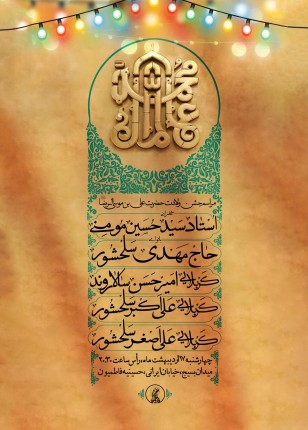 مراسم جشن ولادت حضرت علی بن موسی الرضا
سخنران
استاد سید حسین مومنی
بانوای
حاج مهدی سلحشور
کربلایی امیر حسن سالاروند
کربلایی علی اکبر سلحشور
کربلایی علی اصغر سلحشور
چهارشنبه ۱۷ اردیبهشت ماه، رأس ساعت ۲۰:۳۰
میدان بسیج، خیابان ایرانی، حسینیه فاطمیون